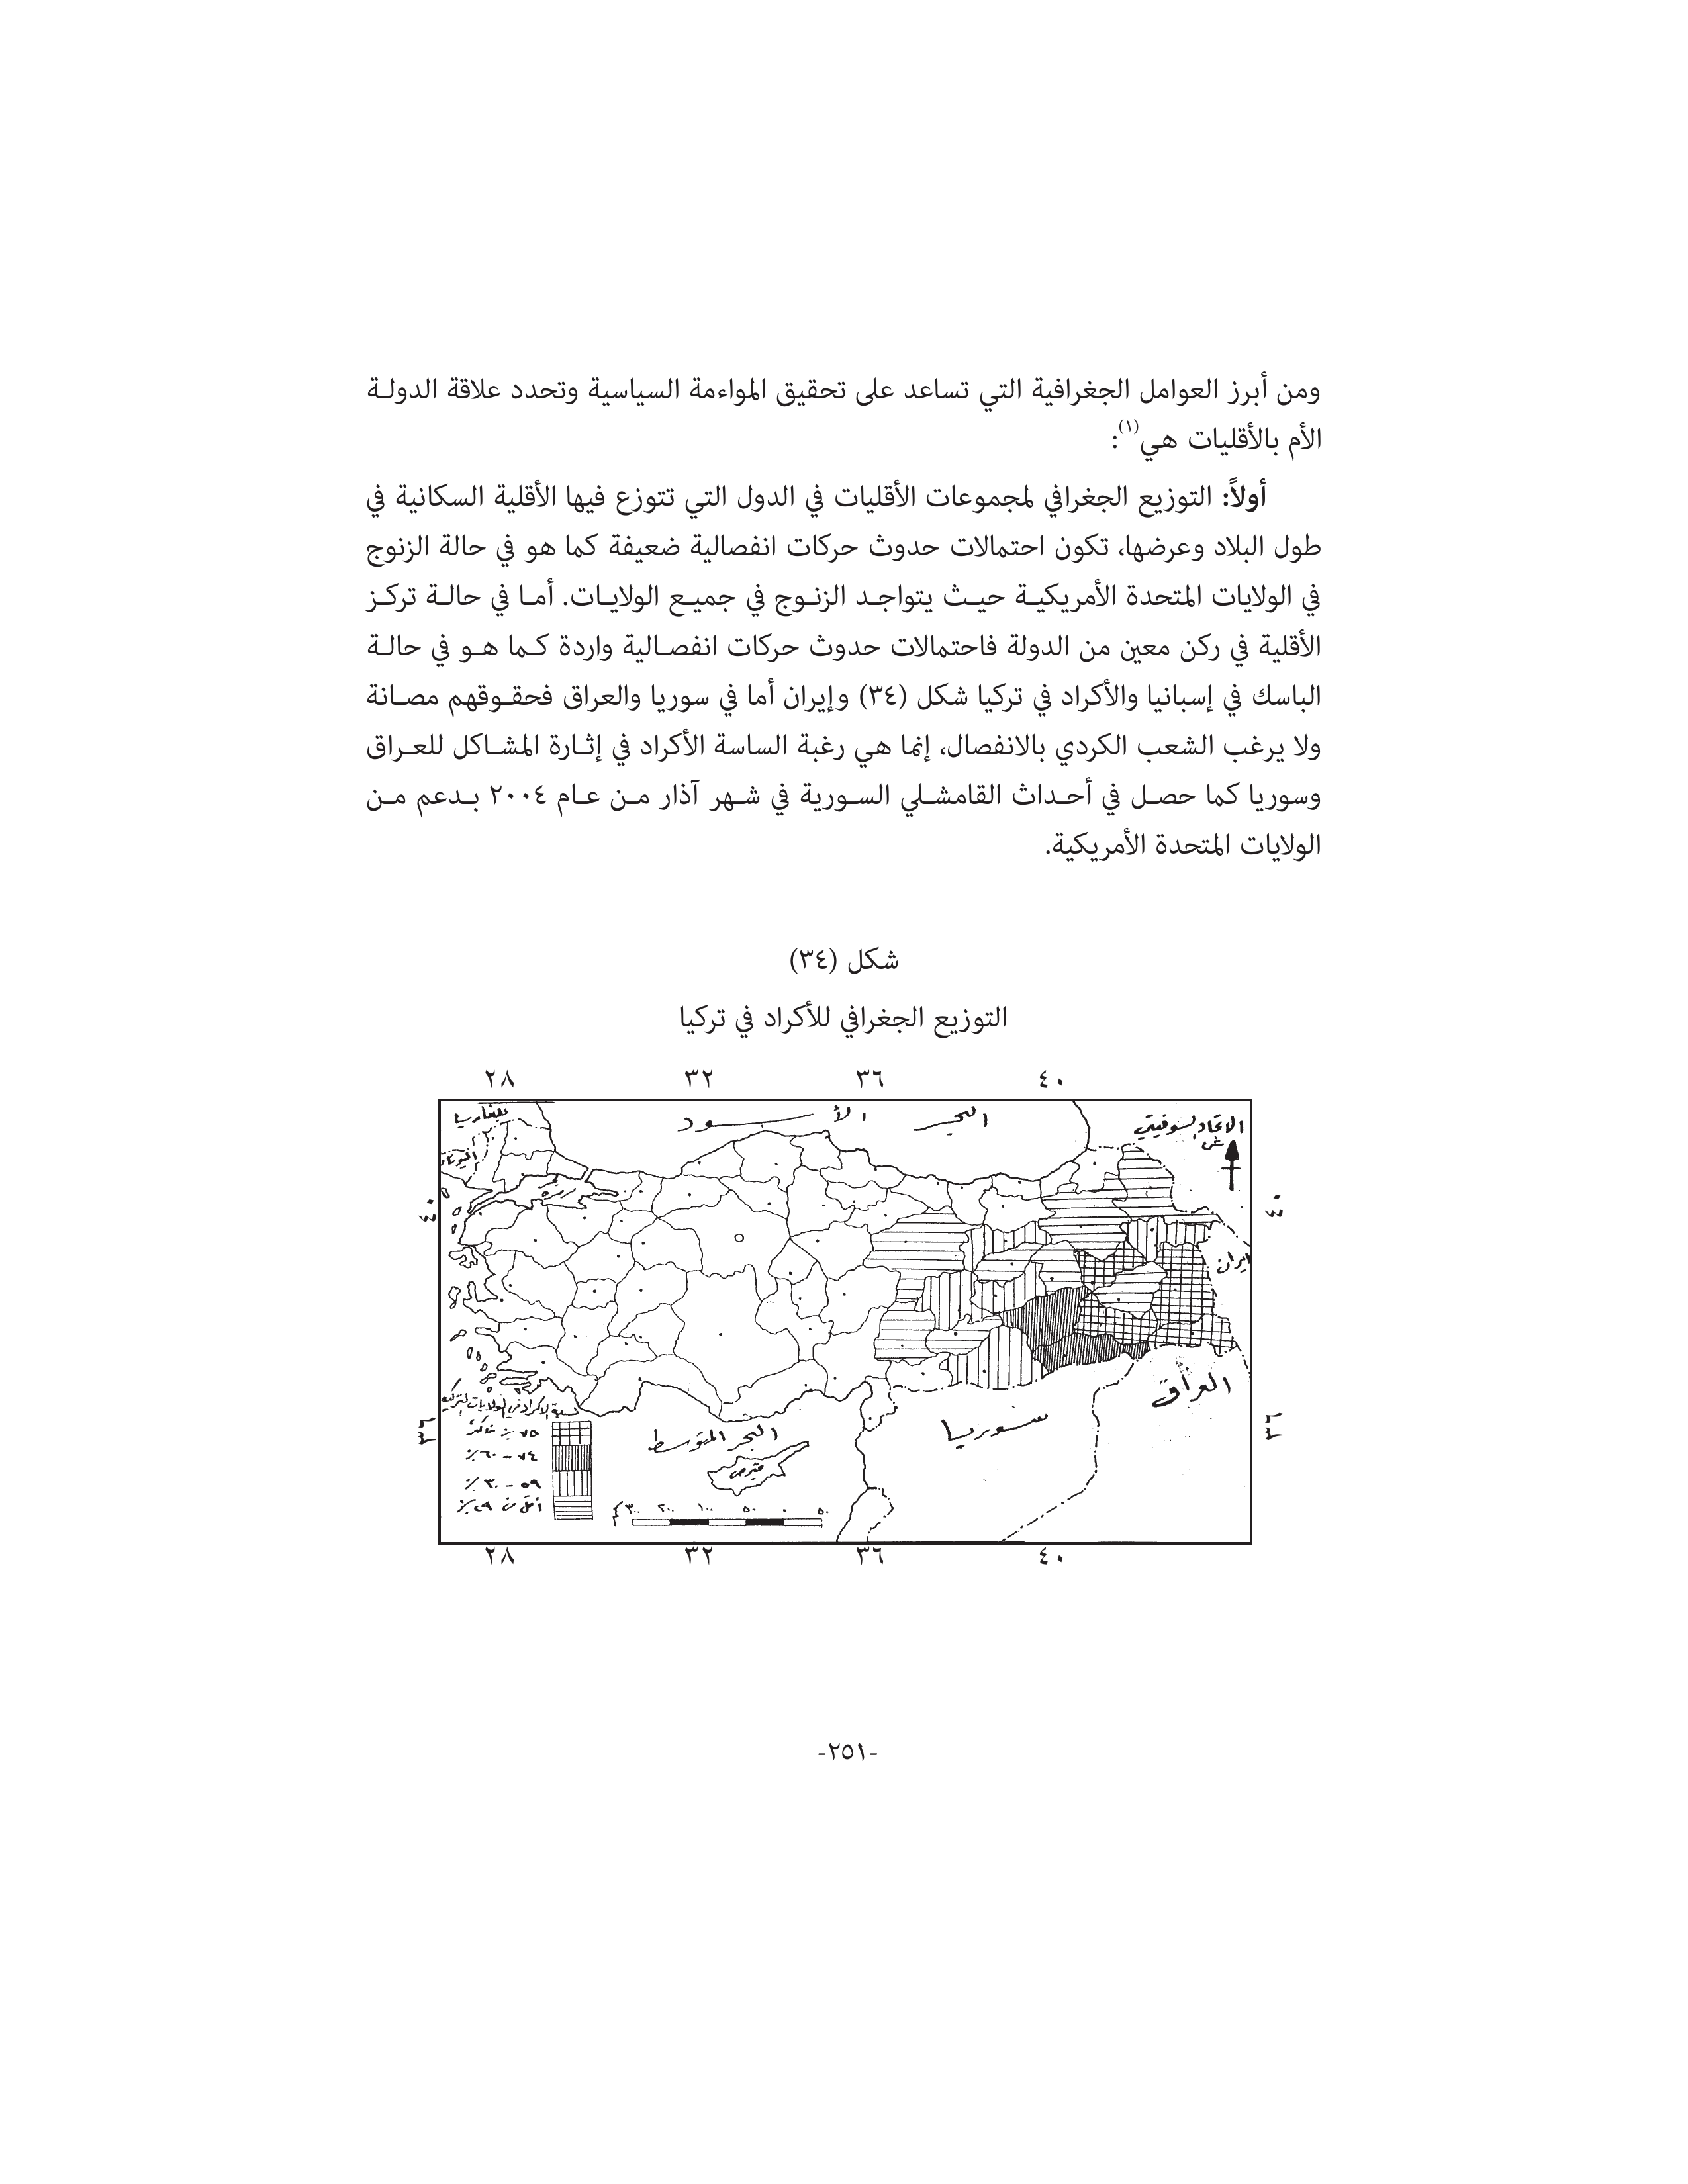 ومن أبرز العوامل الجغرافية التي تساعد على تحقيق المواءمة السياسية وتحدد علاقة الدولة
الأم بالأقليات هي(١):
أولاً: التوزيع الجغرافي لمجموعات الأقليات في الدول التي تتوزع فيها الأقلية السكانية في
طول البلاد وعرضها، تكون احتمالات حدوث حركات انفصالية ضعيفة كما هو في حالة الزنوج
في الولايات المتحدة الأمريكية حيث يتواجد الزنوج في جميع الولايات. أما في حالة تركز
الأقلية في ركن معين من الدولة فاحتمالات حدوث حركات انفصالية واردة كما هو في حالة
الباسك في إسبانيا والأكراد في تركيا شكل (٣٤) وإيران أما في سوريا والعراق فحقوقهم مصانة
ولا يرغب الشعب الكردي بالانفصال، إنما هي رغبة الساسة الأكراد في إثارة المشاكل للعراق
وسوريا كما حصل في أحداث القامشلي السورية في شهر آذار من عام ٢٠٠٤ بدعم من
الولايات المتحدة الأمريكية.
شكل (٣٤)
التوزيع الجغرافي للأكراد في تركيا
٢٨ ٣٢ ٣٦ ٤٠
بلغاريا
البحر الأسود
الاتحاد السوفيتي
ش
اليونان
مرمرة
٤٠
٤٠
ايران
العراق
سوريا
البحر المتوسط
قبرص
٣٦
٣٦
نسبة الاكراد في الولايات التركية
٧٥٪ فأكثر
٧٤ - ٦٠٪
٥٩ - ٣٠٪
أقل من ٢٩٪
٥٠ ٠ ٥٠ ١٠٠ ٢٠٠ ٣٠٠ كم
٢٨ ٣٢ ٣٦ ٤٠
-٢٥١-